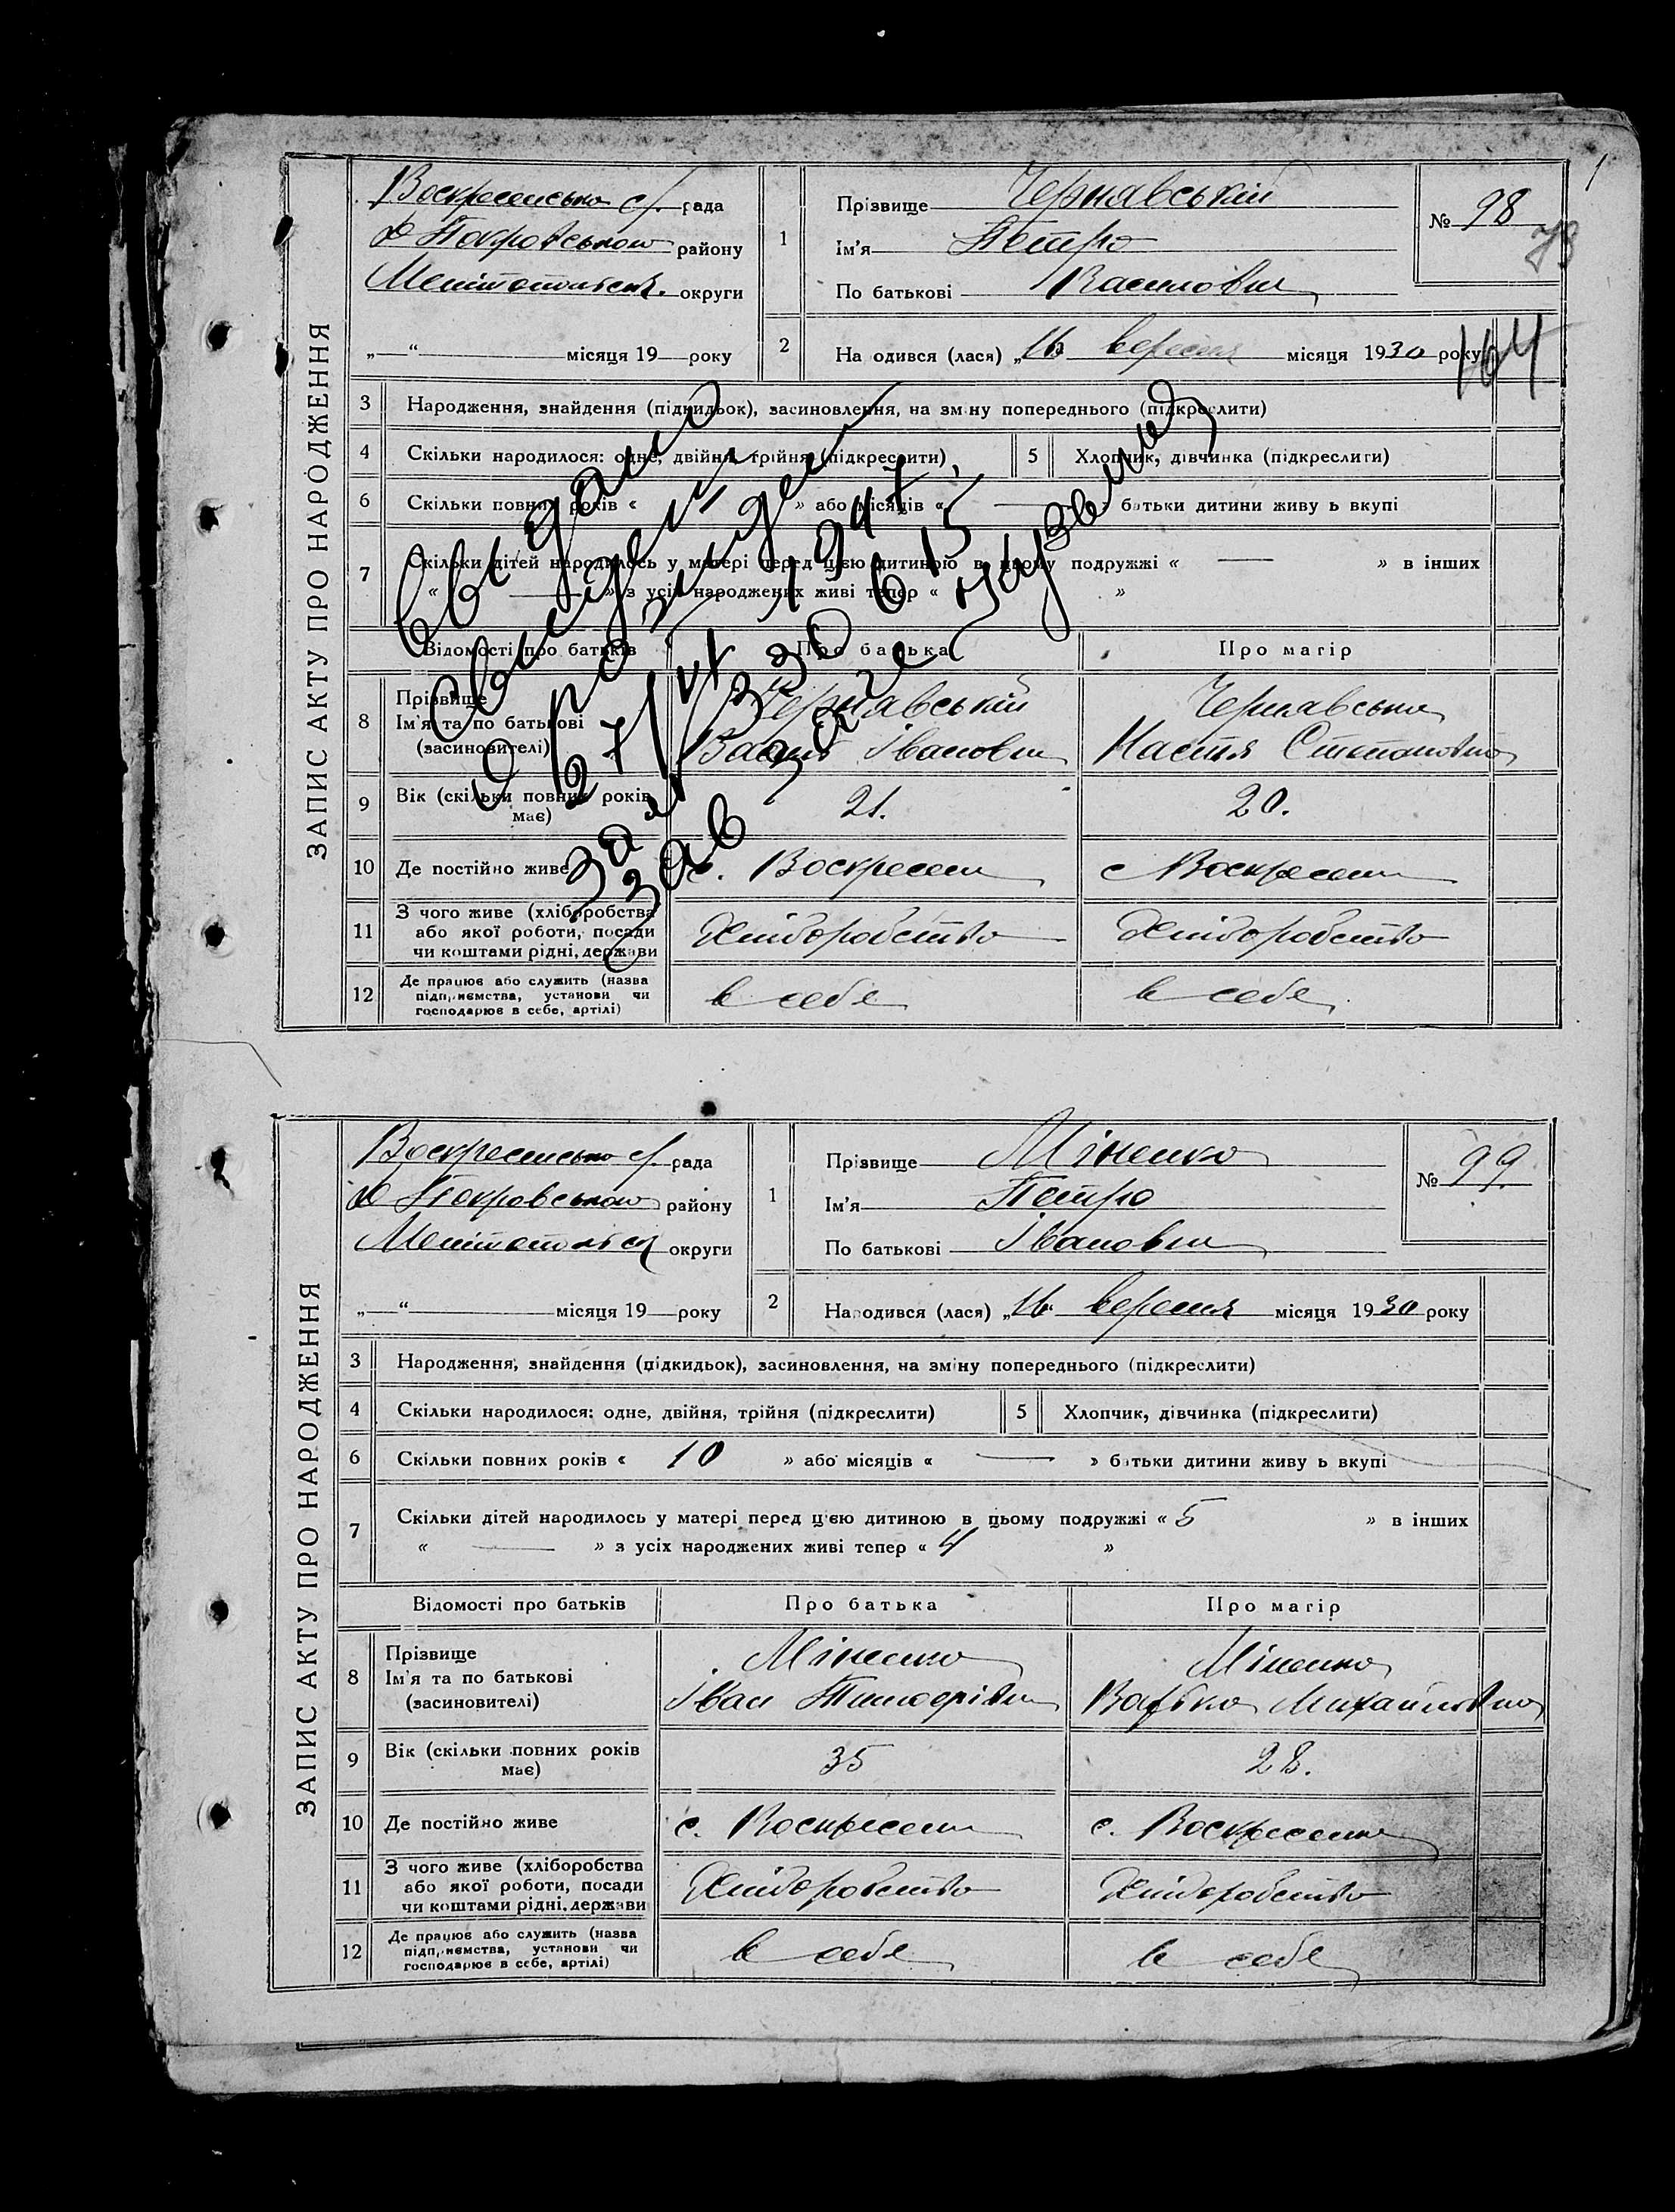 ЗАПИС АКТУ ПРО НАРОДЖЕННЯ
Воскресенсько с/. рада
Покровського району
Мелітопольск. округи
„—“ місяця 19 — року
1 Прізвище Чернявській
Ім'я Петро
По батькові Василович
№ 98
73
2 На одився (лася) „16 вересня місяця 1930 року
164
3 Народження, знайдення (підкидьок), засиновлення, на зміну попереднього (підкреслити)
4 Скільки народилося: одне, двійня, трійня (підкреслити)
5 Хлопчик, дівчинка (підкреслити)
6 Скільки повних років « » або місяців « — » батьки дитини живуть вкупі
7 Скільки дітей народилось у матері перед цією дитиною в цьому подружжі « — » в інших
« — » з усіх народжених живі тепер « »
Выдано
Свиде
о рождении
27/VI 1947
за № 615
Зав загс
Відомості про батьків Про батька Про матір
8 Прізвище
Ім'я та по батькові
(засиновителі)
Чернявській
Василь Іванович
Чернявська
Настя Степановна
9 Вік (скільки повних років має) 21. 20.
10 Де постійно живе с. Воскресен с Воскресен
11 З чого живе (хліборобства
або якої роботи, посади
чи коштами рідні, держави
Хлідоробство Хлідоробство
12 Де працює або служить (назва
підприємства, установи чи
господарює в себе, артілі)
в себе в себе
ЗАПИС АКТУ ПРО НАРОДЖЕННЯ
Воскресенсько с/. рада
Покровського району
Мелітопольск округи
„—“ місяця 19 — року
1 Прізвище Міненко
Ім'я Петро
По батькові Іванович
№ 99
2 Народився (лася) „16 вересня місяця 1930 року
3 Народження, знайдення (підкидьок), засиновлення, на зміну попереднього (підкреслити)
4 Скільки народилося: одне, двійня, трійня (підкреслити)
5 Хлопчик, дівчинка (підкреслити)
6 Скільки повних років « 10 » або місяців « — » батьки дитини живуть вкупі
7 Скільки дітей народилось у матері перед цією дитиною в цьому подружжі « 5 » в інших
« — » з усіх народжених живі тепер « 4 »
Відомості про батьків Про батька Про матір
8 Прізвище
Ім'я та по батькові
(засиновителі)
Міненко
Іван Тимофієвич
Міненко
Варька Михайловна
9 Вік (скільки повних років має) 35 28.
10 Де постійно живе с. Воскресен с. Воскресенка
11 З чого живе (хліборобства
або якої роботи, посади
чи коштами рідні, держави
Хлідоробство Хлідоробство
12 Де працює або служить (назва
підприємства, установи чи
господарює в себе, артілі)
в себе в себе